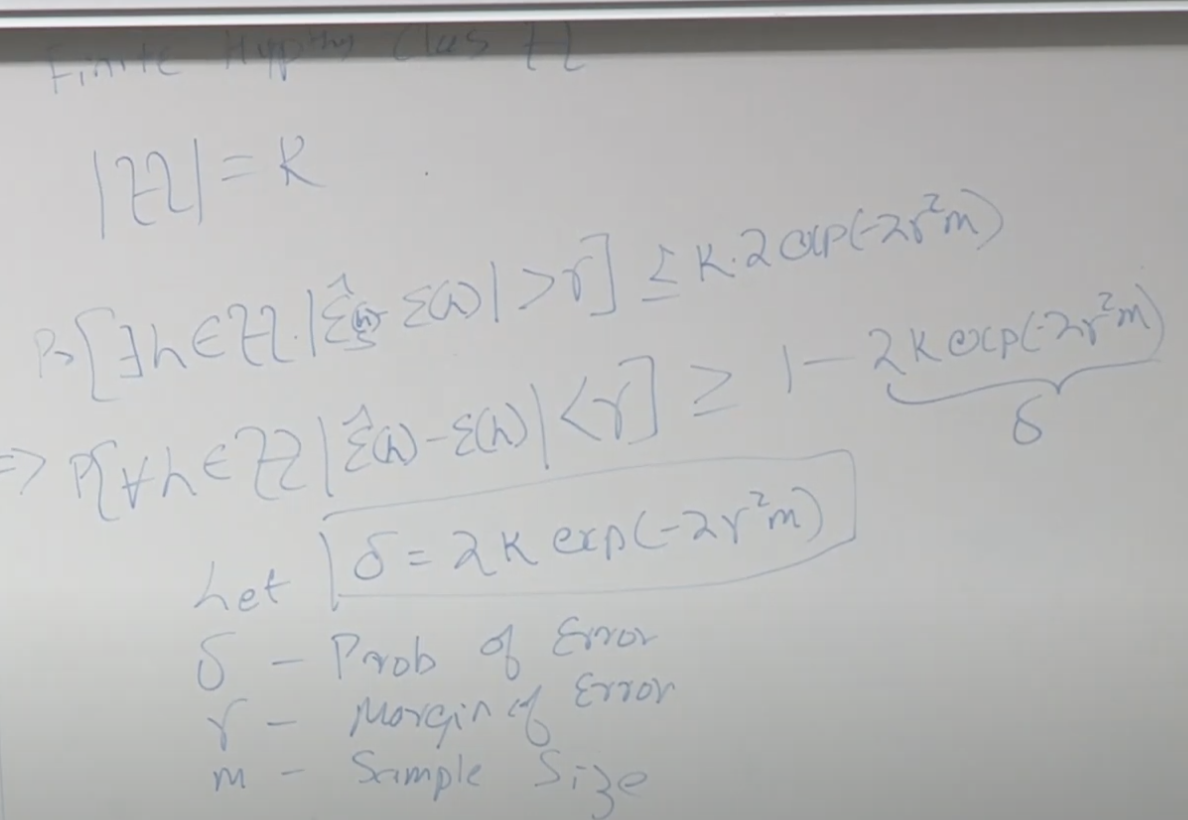 Finite Hypths Clas H
|H| = K
Pr[∃h∈H.|ε̂(h)-ε(h)|>γ] ≤ K.2 exp(-2γ²m)
=> P[∀h∈H |ε̂(h)-ε(h)|<γ] ≥ 1 - 2K exp(-2γ²m)
δ
Let δ = 2K exp(-2γ²m)
δ - Prob of Error
γ - Margin of Error
m - Sample Size